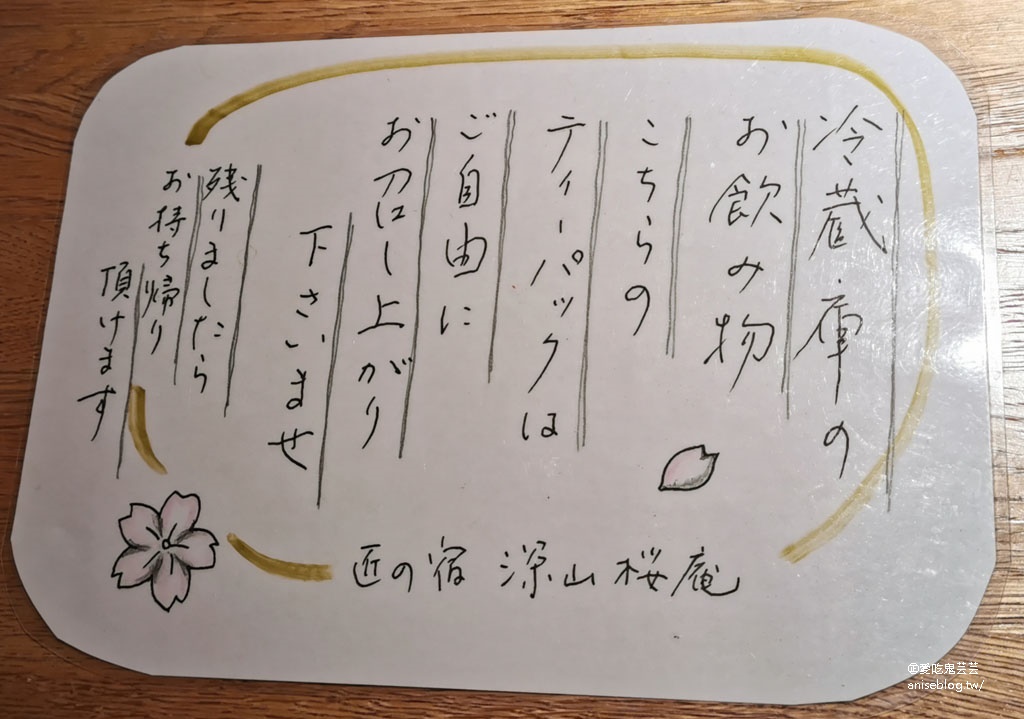 冷蔵庫の
お飲み物
こちらの
ティーパックは
ご自由に
お召し上がり
下さいませ
残りましたら
お持ち帰り
頂けます
匠の宿 深山桜庵
愛吃鬼芸芸
aniseblog.tw/